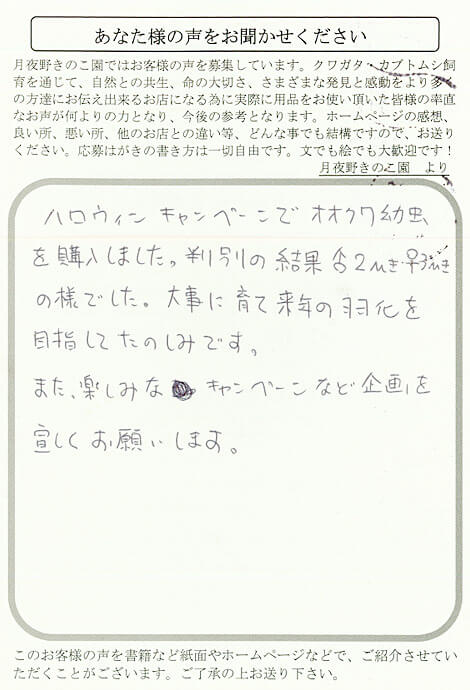 あなた様の声をお聞かせください
月夜野きのこ園ではお客様の声を募集しています。クワガタ・カブトムシ飼
育を通じて、自然との共生、命の大切さ、さまざまな発見と感動をより多く
の方達にお伝え出来るお店になる為に実際に用品をお使い頂いた皆様の率直
なお声が何よりの力となり、今後の参考となります。ホームページの感想、
良い所、悪い所、他のお店との違い等、どんな事でも結構ですので、お送り
ください。応募はがきの書き方は一切自由です。文でも絵でも大歓迎です！
月夜野きのこ園　より
ハロウィンキャンペーンでオオクワ幼虫
を購入しました。判別の結果♂2ひき・♀3ひき
の様でした。大事に育て来年の羽化を
目指してたのしみです。
また、楽しみなキャンペーンなど企画を
宜しくお願いします。
このお客様の声を書籍など紙面やホームページなどで、ご紹介させてい
ただくことがございます。ご了承の上お送り下さい。